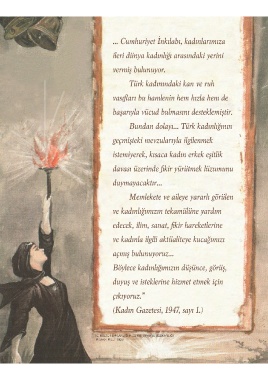 ... Cumhuriyet İnkılabı, kadınlarımıza
ileri dünya kadınlığı arasındaki yerini
vermiş bulunuyor.
Türk kadınındaki kan ve ruh
vasıfları bu hamlenin hem hızla hem de
başarıyla vücud bulmasını desteklemiştir.
Bundan dolayı... Türk kadınlığının
geçmişteki mevzularıyla ilgilenmek
istemiyerek, kısaca kadın erkek eşitlik
davası üzerinde fikir yürütmek lüzumunu
duymayacaktır...
Memlekete ve aileye yararlı görülen
ve kadınlığımızın tekamülüne yardım
edecek, ilim, sanat, fikir hareketlerine
ve kadınla ilgili aktüaliteye kucağımızı
açmış bulunuyoruz...
Böylece kadınlığımızın düşünce, görüş,
duyuş ve isteklerine hizmet etmek için
çıkıyoruz."
(Kadın Gazetesi, 1947, sayı 1.)